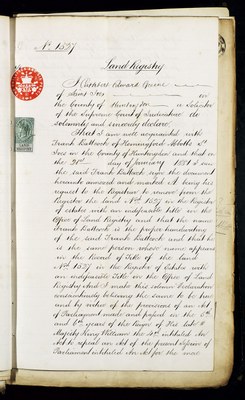 No. 1527
Land Registry
I Charles Edward
of Saint Ives in
the County of Huntingdon a Solicitor
of the Supreme Court of Judicature do
solemnly and sincerely declare
That I am well acquainted with
Frank Bullock of Hemingford Abbotts St
Ives in the County of Huntingdon and that on
the 31st day of January 1881 I saw
the said Frank Bullock sign the document
hereunto annexed and marked A being his
request to the Registrar to remove from the
Register the land No. 1527 in the Register
of estates with an indefeasible title in the
Office of Land Registry and that the name
Frank Bullock is the proper handwriting
of the said Frank Bullock and that he
is the same person whose name appears
in the Record of Title of the land
No. 1527 in the Register of Estates with
an indefeasible Title in the Office of Land
Registry And I make this solemn Declaration
conscientiously believing the same to be true
and by virtue of the provisions of an Act
of Parliament made and passed in the 5th
and 6th years of the Reign of His late
Majesty King William the 4th intituled An
Act to repeal an Act of the present Session of
Parliament intituled An Act for the more